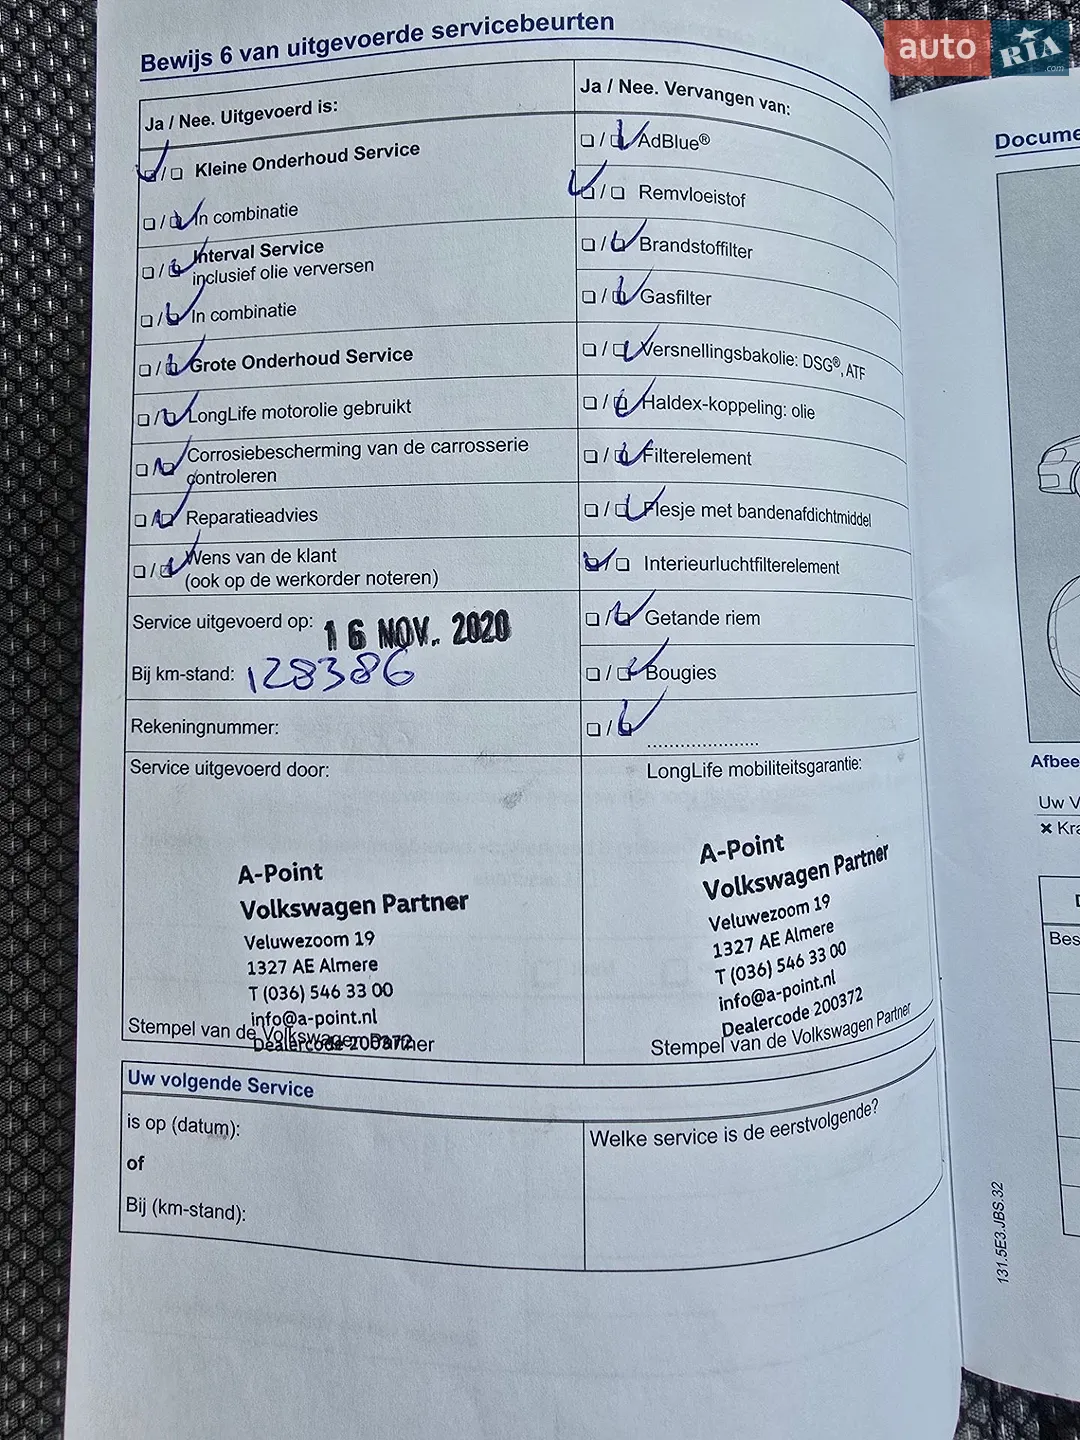 auto RIA.com
Bewijs 6 van uitgevoerde servicebeurten
Ja / Nee. Uitgevoerd is:
Kleine Onderhoud Service
In combinatie
Interval Service
inclusief olie verversen
In combinatie
Grote Onderhoud Service
LongLife motorolie gebruikt
Corrosiebescherming van de carrosserie
controleren
Reparatieadvies
Wens van de klant
(ook op de werkorder noteren)
Service uitgevoerd op: 16 NOV. 2020
Bij km-stand: 128386
Rekeningnummer:
Ja / Nee. Vervangen van:
AdBlue®
Remvloeistof
Brandstoffilter
Gasfilter
Versnellingsbakolie: DSG®, ATF
Haldex-koppeling: olie
Filterelement
Flesje met bandenafdichtmiddel
Interieurluchtfilterelement
Getande riem
Bougies
Service uitgevoerd door:
A-Point
Volkswagen Partner
Veluwezoom 19
1327 AE Almere
T (036) 546 33 00
info@a-point.nl
Dealercode 200372
Stempel van de Volkswagen Partner
LongLife mobiliteitsgarantie:
A-Point
Volkswagen Partner
Veluwezoom 19
1327 AE Almere
T (036) 546 33 00
info@a-point.nl
Dealercode 200372
Stempel van de Volkswagen Partner
Uw volgende Service
is op (datum):
of
Bij (km-stand):
Welke service is de eerstvolgende?
Docume
Afbee
Uw V
× Kra
Bes
131.5E3.JBS.32